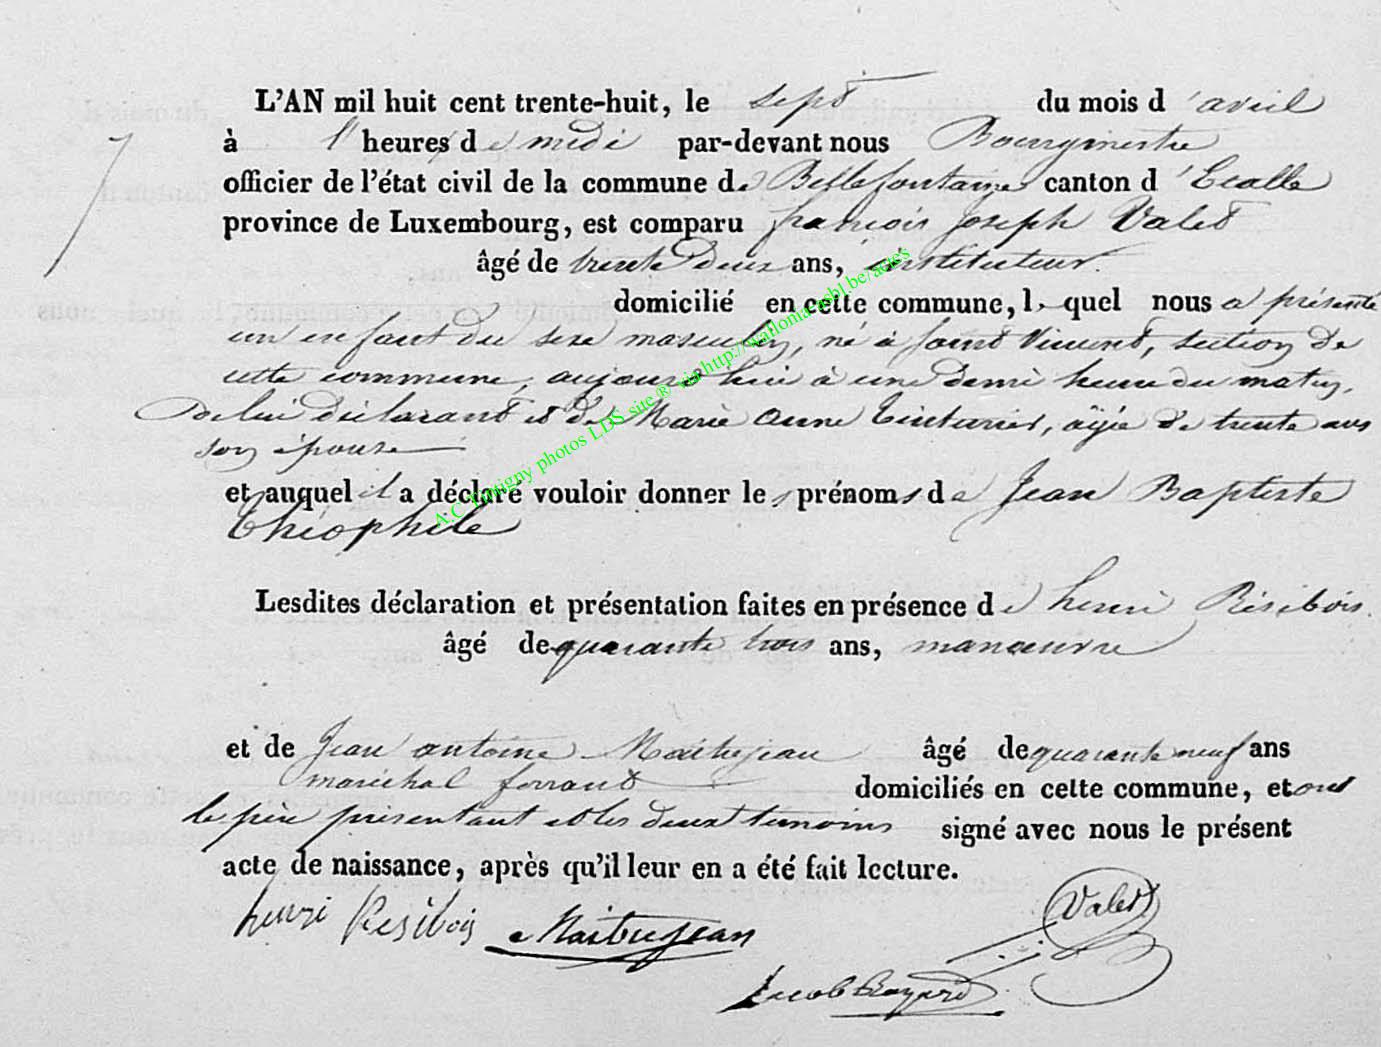 L'AN mil huit cent trente-huit, le sept du mois d'avril
7
à l'heures de midi par-devant nous Bourgmestre
officier de l'état civil de la commune de Bellefontaine canton d'Etalle
province de Luxembourg, est comparu françois Joseph Valet
âgé de trente deux ans, instituteur.
domicilié en cette commune, lequel nous a présenté
un enfant du sexe masculin, né à saint Vincent, section de
cette commune, aujourd'hui à une demi heure du matin,
de lui déclarant et de Marie Anne Tinturier, agée de trente ans
son épouse
et auquel il a déclaré vouloir donner les prénoms de Jean Baptiste
Théophile
Lesdites déclaration et présentation faites en présence de henri Résibois.
âgé de quarante trois ans, manœuvre
et de Jean antoine Maitrejean âgé de quarante neuf ans
maréchal ferrant domiciliés en cette commune, et ont
le père présentant et les deux témoins signé avec nous le présent
acte de naissance, après qu'il leur en a été fait lecture.
henri Resibois Maitrejean Valet
Jacob
A.C. Tintigny photos LDS site ® via http://wallonia-asbl.be/actes